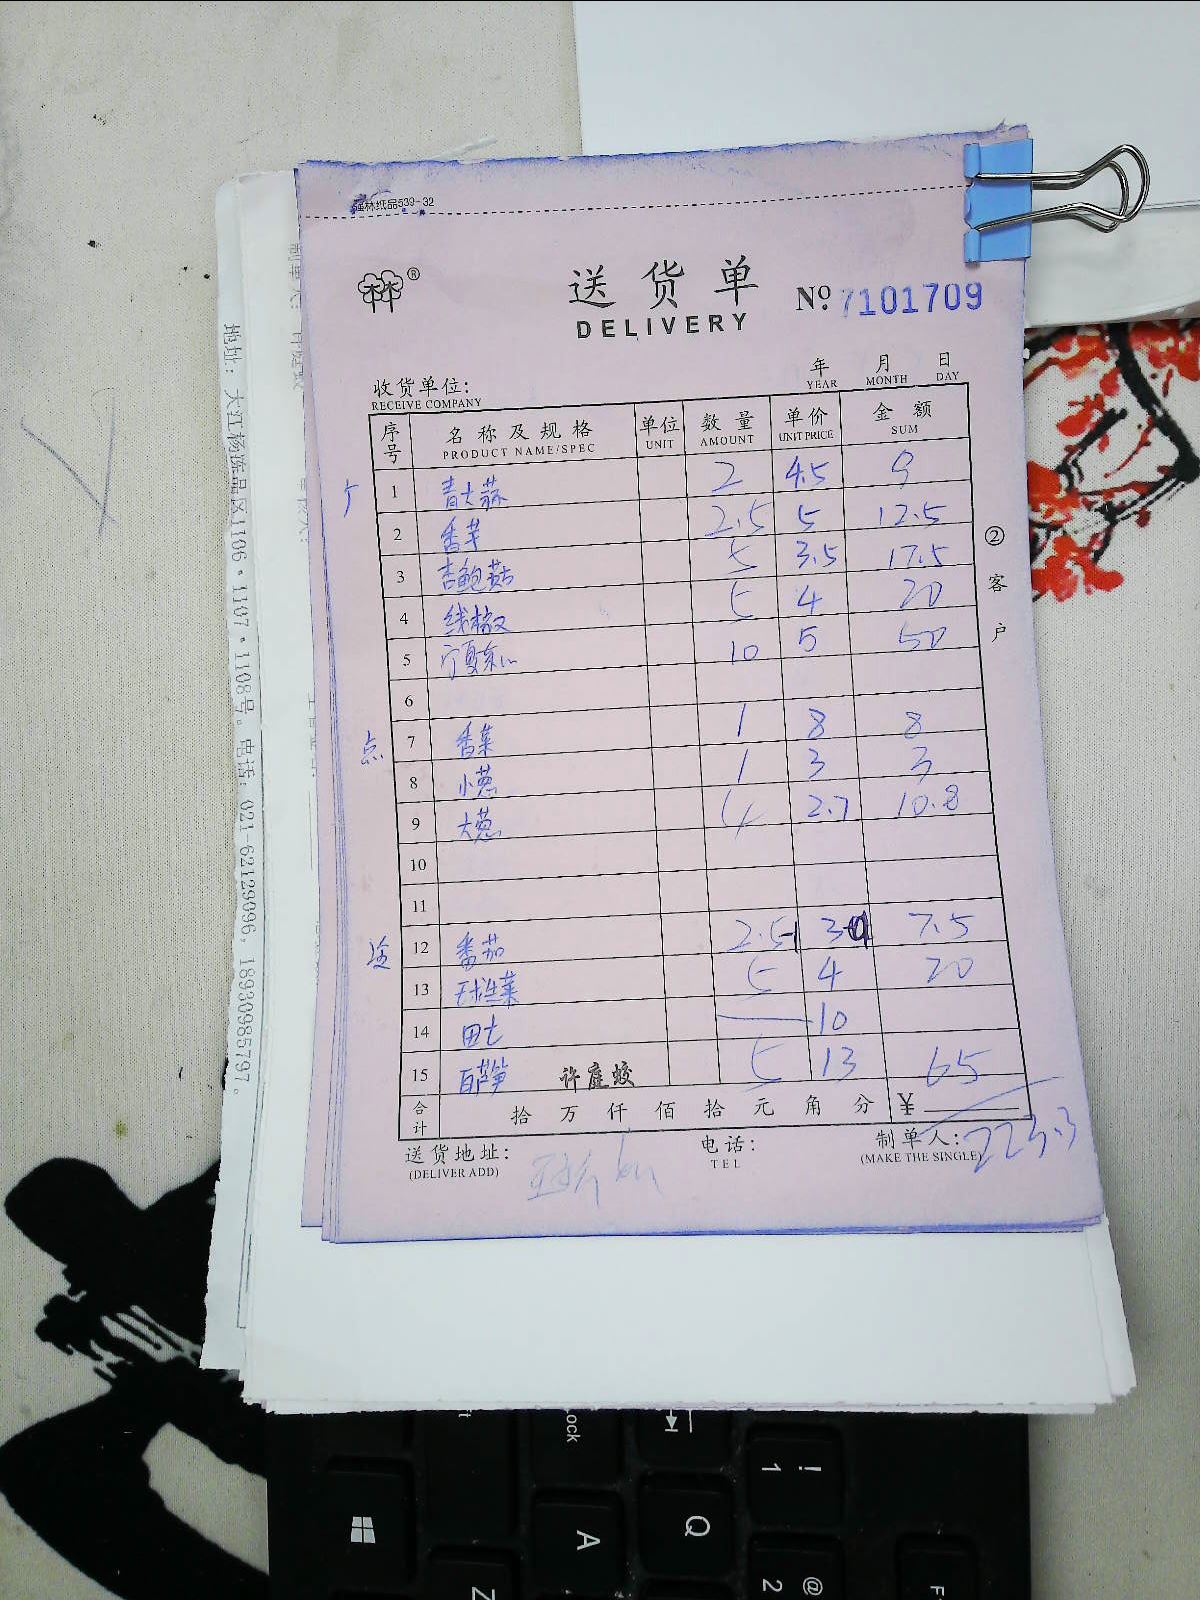 强林纸品539-32
林®
送货单
DELIVERY
Nº 7101709
收货单位:
RECEIVE COMPANY
年 月 日
YEAR MONTH DAY
序号 名称及规格 单位 数量 单价 金额
PRODUCT NAME/SPEC UNIT AMOUNT UNIT PRICE SUM
1 青大蒜 2 4.5 9
2 香芋 2.5 5 12.5
3 杏鲍菇 5 3.5 17.5
4 线椒 5 4 20
5 宁夏菜心 10 5 50
6
点 7 香菜 1 8 8
8 小葱 1 3 3
9 大葱 4 2.7 10.8
10
11
12 番茄 2.5 3 7.5
13 球生菜 5 4 20
14 田七 10
15 白芦笋 许庭蛟 5 13 65
合计 拾 万 仟 佰 拾 元 角 分 ¥
223.3
送货地址: 电话: 制单人:
(DELIVER ADD) TEL (MAKE THE SINGLE)
②客户
地址: 大江杨冻品区1106·1107·1108号。电话: 021-62129096, 18930985797。
Q
A
Z
! 1
@ 2